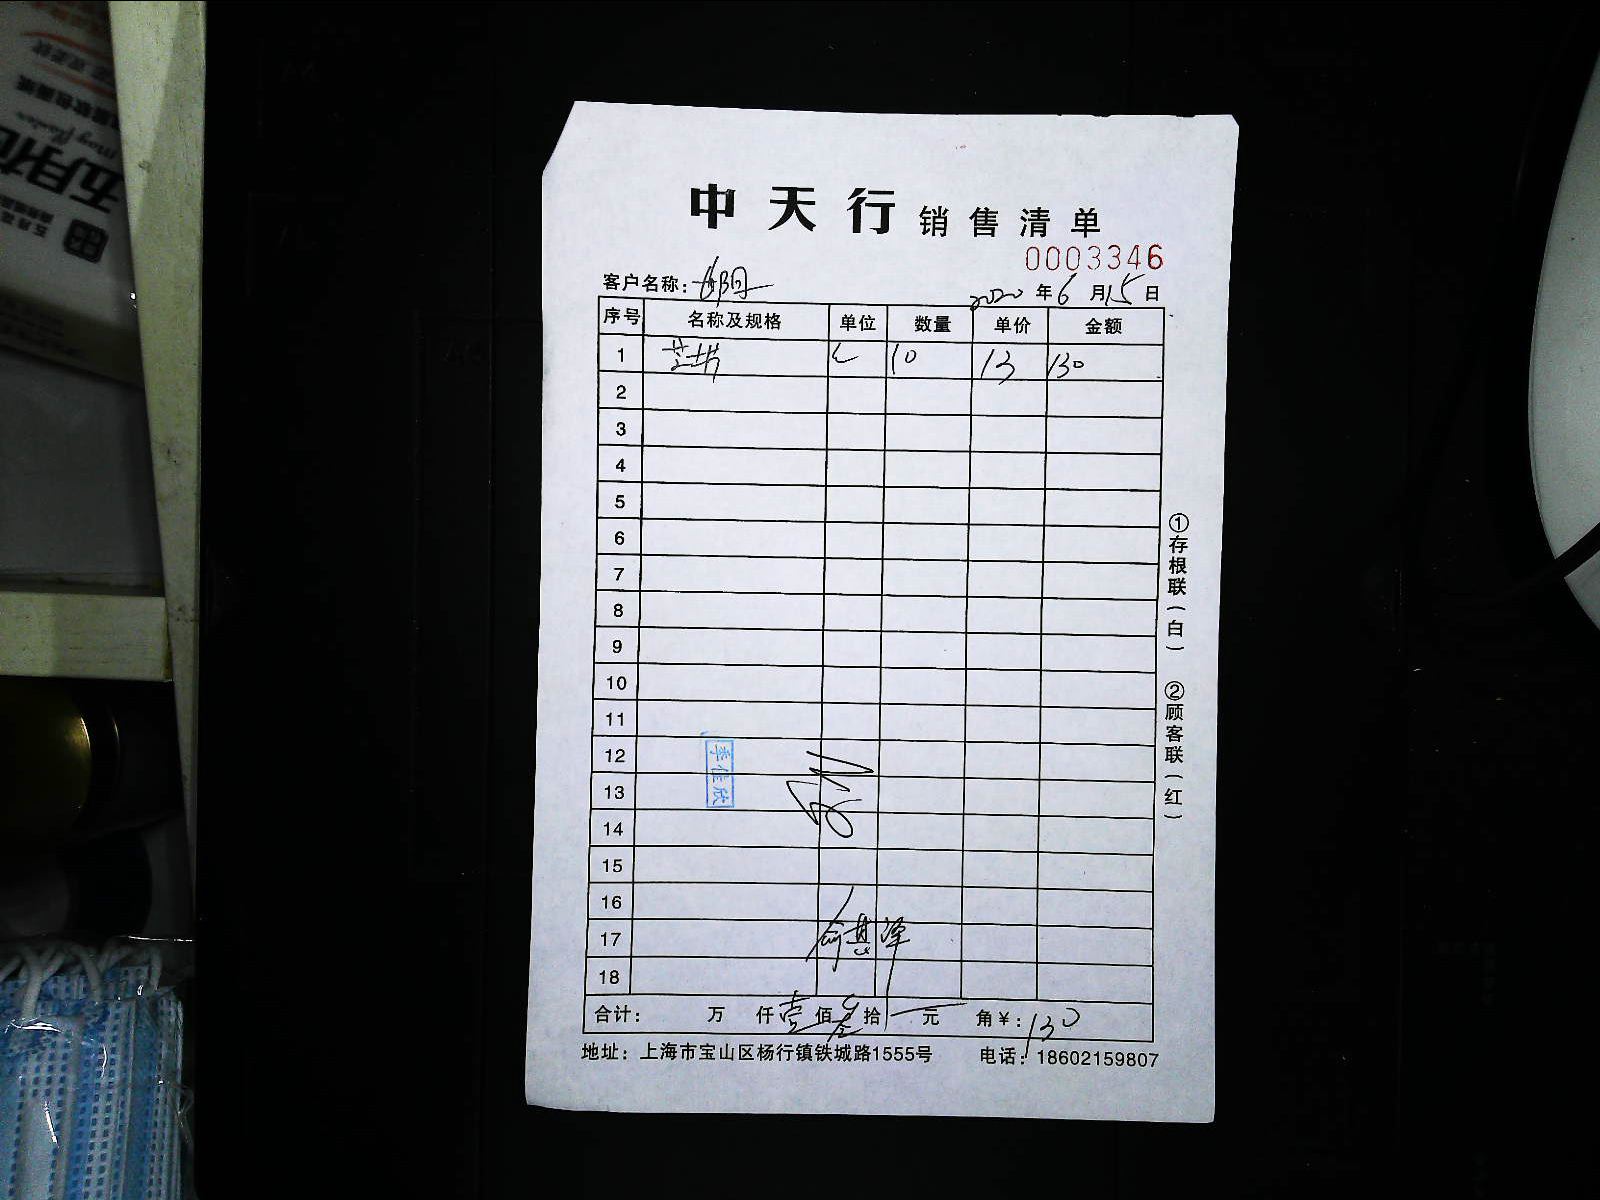 中天行 销售清单
0003346
客户名称：
2020 年 6 月 15 日
序号 名称及规格 单位 数量 单价 金额
1 10 13 130
2
3
4
5
6
7
8
9
10
11
12
13
14
15
16
17
18
季佳欣
俞惠泽
合计： 万 仟 壹 佰 叁 拾 元 角 ¥：130
地址：上海市宝山区杨行镇铁城路1555号 电话：18602159807
①存根联（白） ②顾客联（红）
五月花